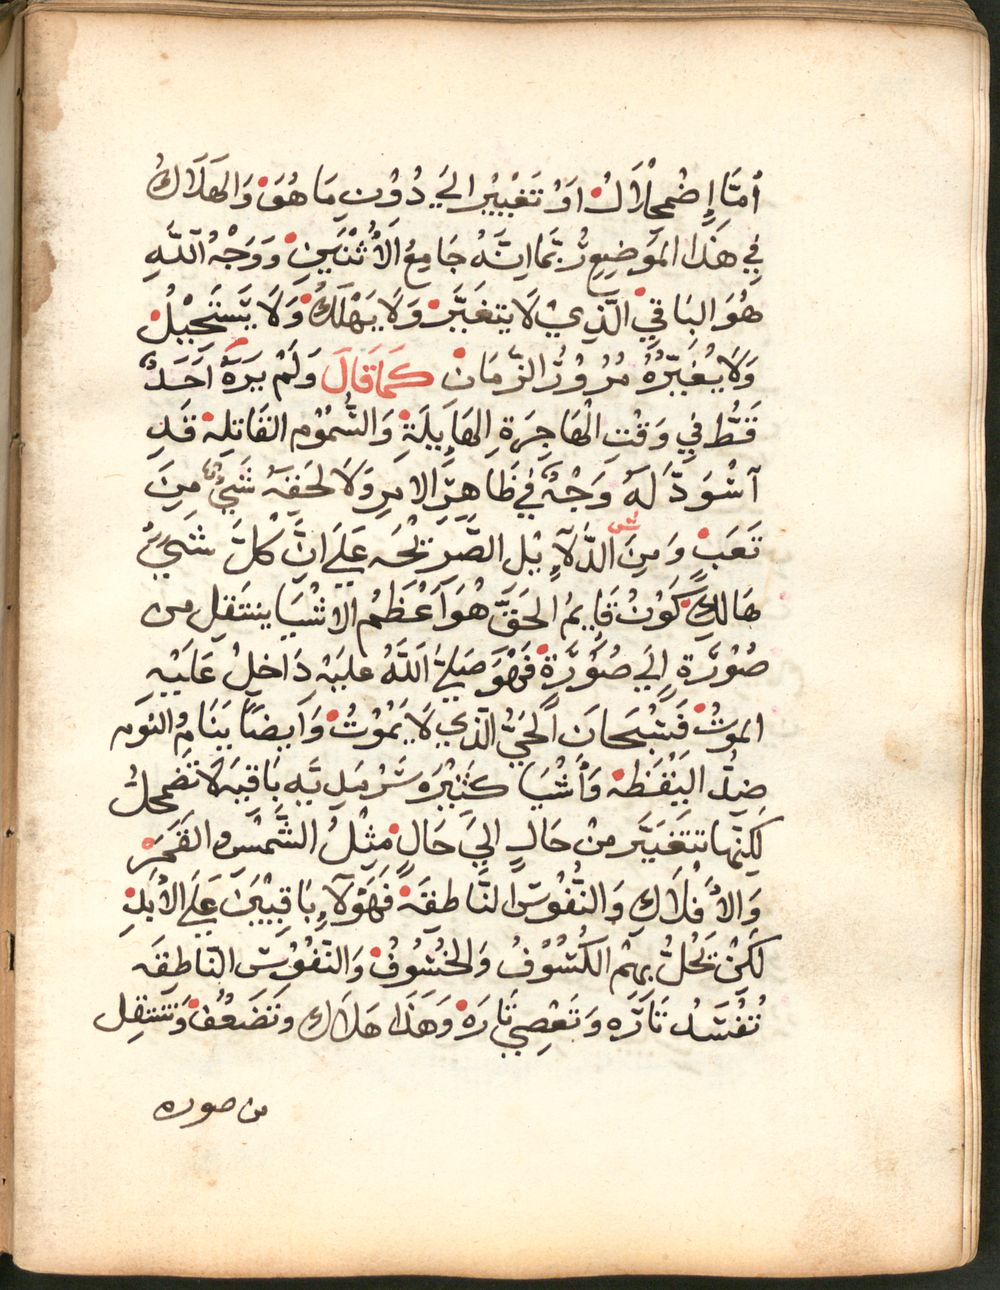 اَمَّا إِضْمِحْلَالٌ اَوْ تَغْيِيْرٌ اليَ دُوْنِ مَا هُوَ وَالهَلَاكُ
فِي هَذَا المَوضِعِ رُبَّمَا اِنَّهُ جَامِعُ الأثْنَينِ وَوَجْهُ اللَّهِ
هُوَ البَاقِي الَّذِيْ لَا يتغَيَّر وَلَا يَهْلَكُ وَلَا يَسْتَحِيْلُ
وَلَا يُغَيِّرُهُ مُرُوْرُ الزَّمَانِ كَمَا قَالَ وَلَمْ يَرَهُ اَحَدٌ
قَطُّ فِي وَقْتِ الْهَاجِرَةِ الهَايِلَةِ وَالسُّمُوْمِ القَاتلِهِ قَدِ
آسْوَدَّ لَهُ وَجْهٌ فِي ظَاهِرِ الامرِ وَلَا لحَقِهُ شَيْءٌ مِنَ
تَعَبٍ وَمِنَ الدَّلَآيِلِ الصَّرِيْحَه عَلَيَ انَّ كُلَّ شَيْءٍ
هَالِكٍ كَوْنُ قَايِمُ الحَقِّ هُوَ اَعْظَمُ الاشْيَا ينتَقلِ من
صُوْرَةٍ اِلَي صُوْرَةٍ فَهْوَ صَلَيَّ اَللَّهُ عليَهْ دَاخِلٌ عَلَيْهِ
الموتْ فَسُبْحَانَ اَلحَيُّ الَّذِي لَا يَمُوْتُ وَايضًا يَنَامُ النوَم
ضِدُّ اليَقْظَه وَأشْيَا كَثِيْرَه سَرْمَدِيَّهِ بَاقيَه لَا تضْمَحلُّ
لَكِنَّهَا تتَغَيَّر مِنْ حَالٍ اِليَ حَالٍ مِثْلُ الشَّمْسِ وَالقَمَر
وَالأَفْلَاكِ وَالنُّفُوسِ النَّاطقَه فَهَؤُلَآءِ بَاقِيْيَن عَلَيَ الأبَدِ
لَكِنْ تَحُلُّ بِهِمُ الكُسُوْفُ وَالخُسُوْفُ وَالنّفُوْسِ النَّاطِقَه
تُفْسَدُ تَارَه وَتَعْصِي تَارَه وَهَذَا هَلَاك وتَضَعُف وَتَنتقِل
من صوره